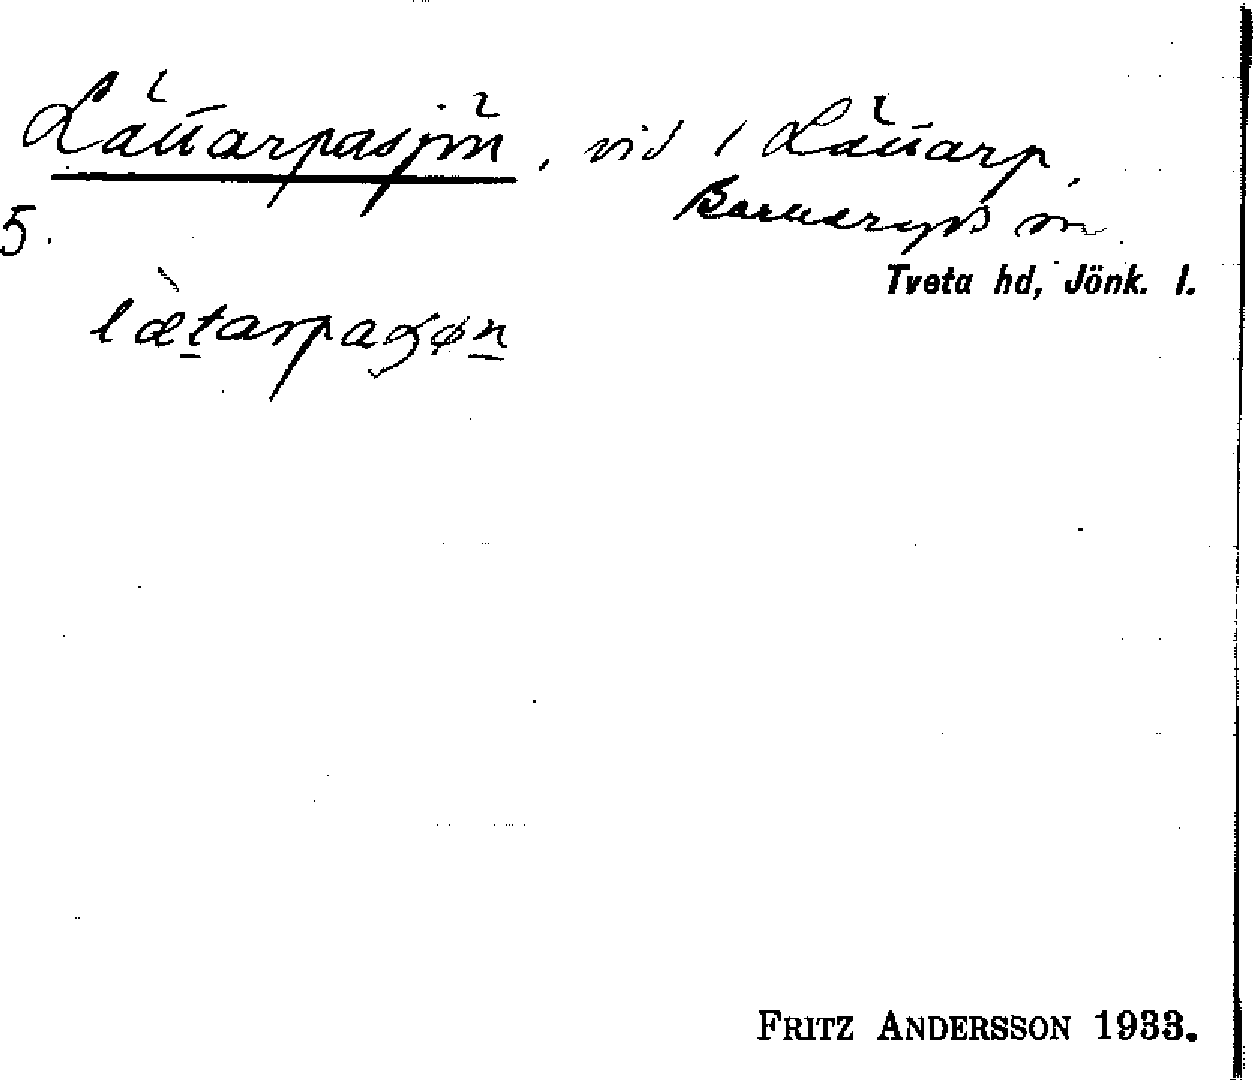 Lättarpasjön, vid 1 Lättarp,
Barnaryds sn.
5.
Tveta hd, Jönk. l.
lætarpaʃøn
FRITZ ANDERSSON 1933.